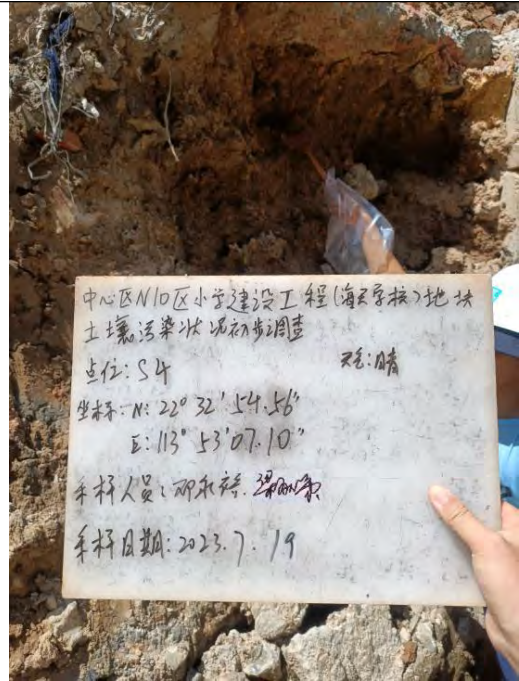 中心区N10区小学建设工程(海天学校)地块
土壤污染状况初步调查
点位: S4 天气: 晴
坐标: N: 22° 32' 54.56"
E: 113° 53' 07.10"
采样人员:
采样日期: 2023.7.19